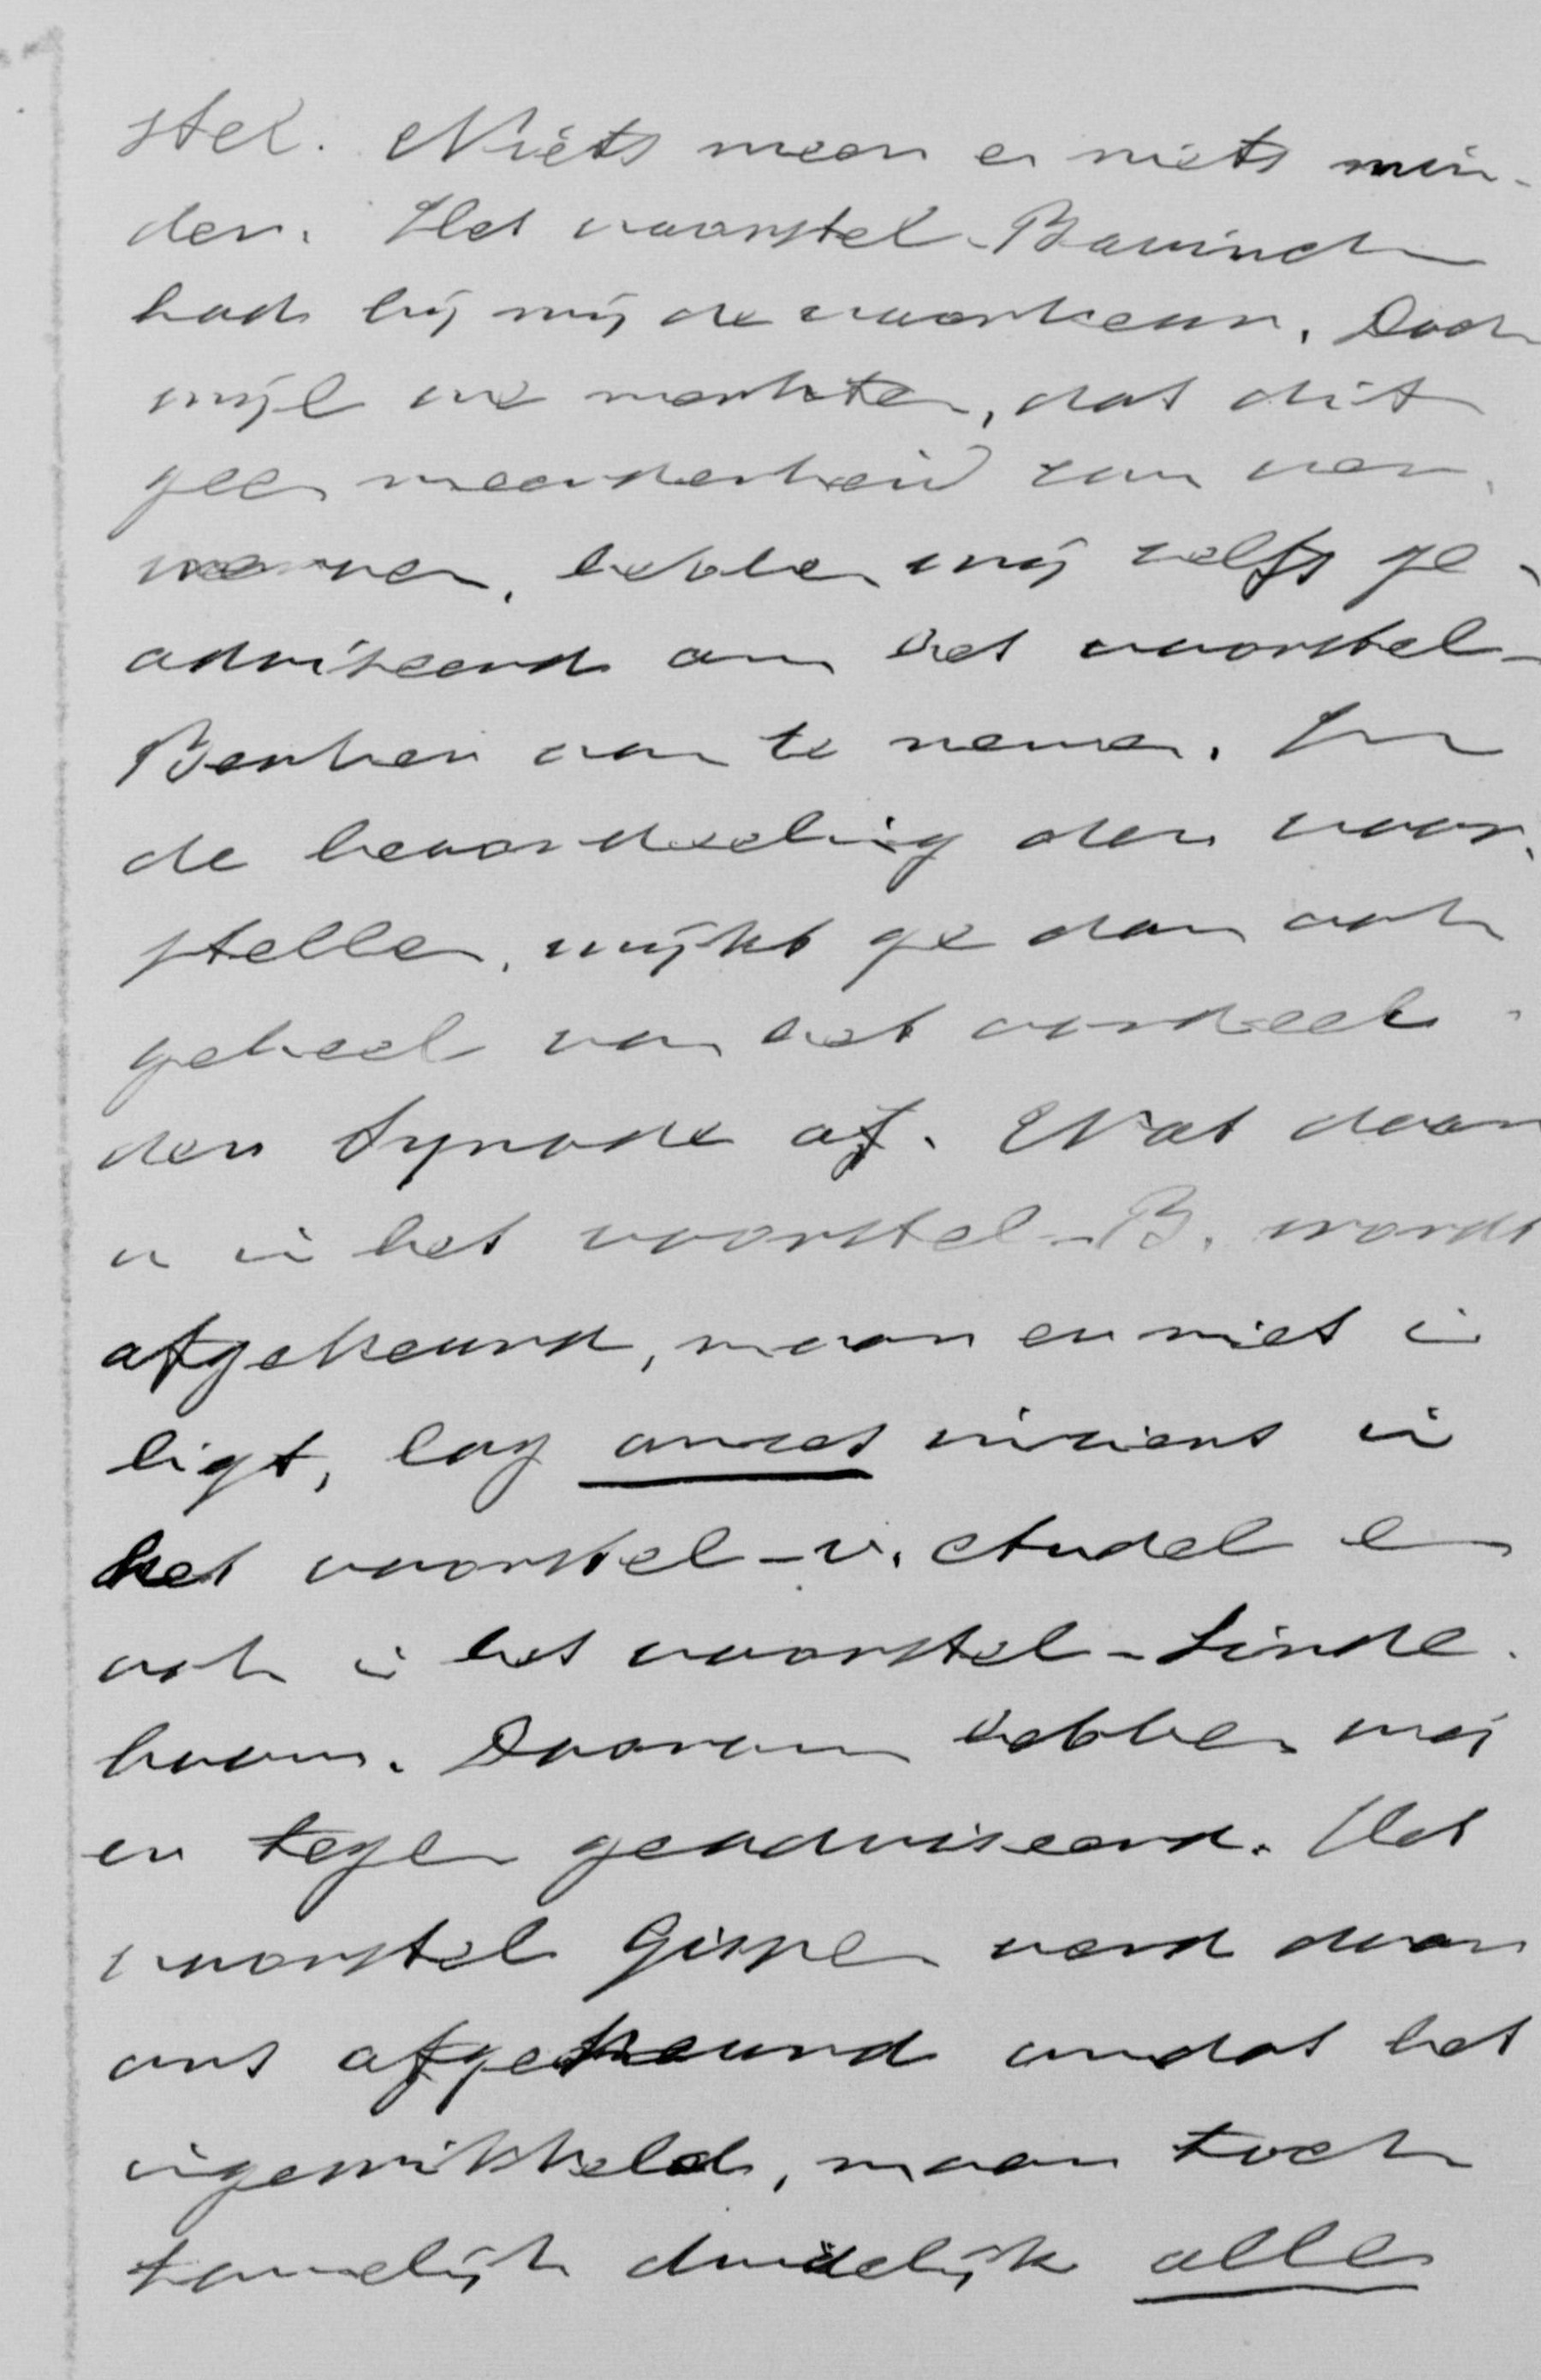 stel. Niets meer en niets min-
der. Het voorstel-Bavinck
had bij mij de voorkeur. Doch
wijl we merkten, dat dit
geen meerderheid zou ver-
werven, hebben wij zelfs ge-
adviseerd om het voorstel-
Beuker aan te nemen. In
de beoordeeling der voor-
stellen, wijkt ge dan ook
geheel van het oordeel
der Synode af. Wat door
u in het voorstel-B. wordt
afgekeurd, maar er niet in
ligt, lag onzes inziens in
het voorstel-v. Andel en
ook in het voorstel-Linde-
boom. Daarom hebben wij
er tegen geadviseerd. Het
voorstel Gispen werd door
ons afgekeurd omdat het
ingewikkeld, maar toch
tamelijk duidelijk alle